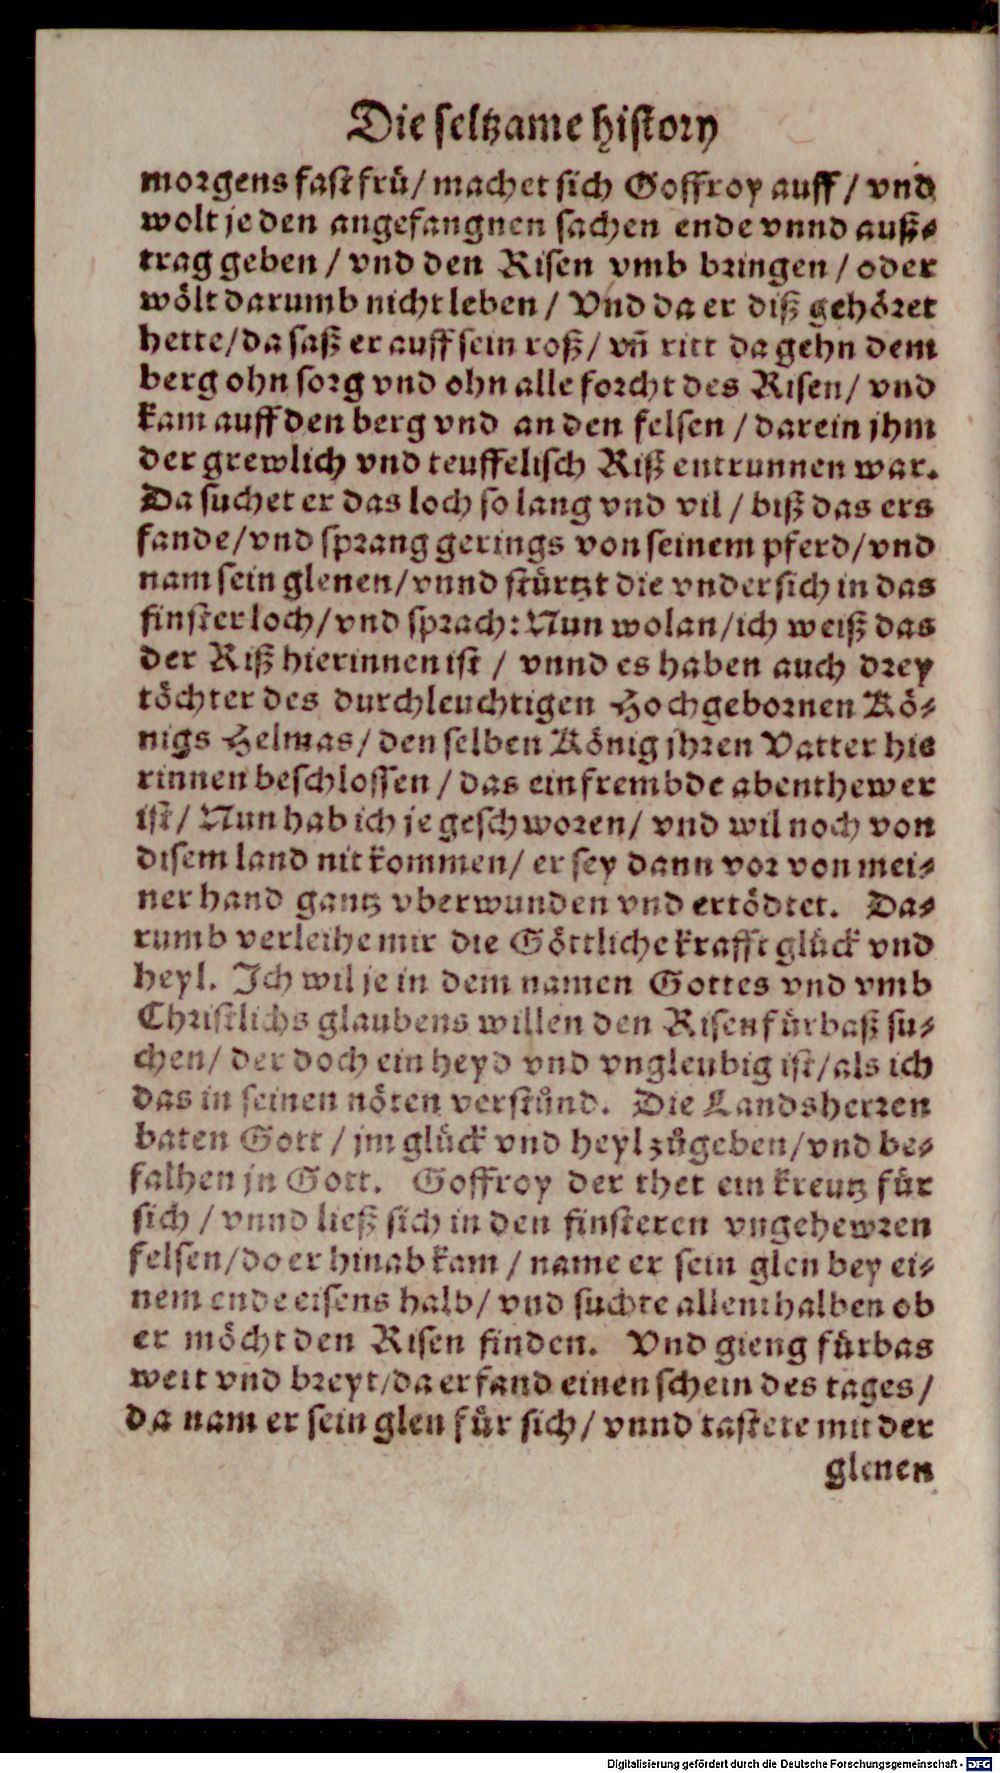 Die seltzame history
morgens fast frü/ machet sich Goffroy auff / vnd
wolt je den angefangnen sachen ende vnnd auß-
trag geben / vnd den Risen vmb bringen / oder
wölt darumb nicht leben / Vnd da er diß gehöret
hette/ da saß er auff sein roß/ vñ ritt da gehn dem
berg ohn sorg vnd ohn alle forcht des Risen/ vnd
kam auff den berg vnd an den felsen / darein jhm
der grewlich vnd teuffelisch Riß entrunnen war.
Da suchet er das loch so lang vnd vil / biß das ers
fande/ vnd sprang gerings von seinem pferd/ vnd
nam sein glenen/ vnnd stürtzt die vndersich in das
finster loch/ vnd sprach: Nun wolan/ ich weiß das
der Riß hierinnen ist / vnnd es haben auch drey
töchter des durchleuchtigen Hochgebornen Kö-
nigs Helmas/ den selben König jhren Vatter hie
rinnen beschlossen / das ein frembde abenthewer
ist/ Nun hab ich je geschworen/ vnd wil noch von
disem land nit kommen/ er sey dann vor von mei-
ner hand gantz vberwunden vnd ertödtet. Da-
rumb verleihe mir die Göttliche krafft glück vnd
heyl. Ich wil je in dem namen Gottes vnd vmb
Christlichs glaubens willen den Risen fürbaß su-
chen/ der doch ein heyd vnd vngleubig ist/ als ich
das in seinen nöten verstůnd. Die Landsherren
baten Gott / jm glück vnd heyl zůgeben/ vnd be-
falhen jn Gott. Goffroy der thet ein kreutz für
sich / vnnd ließ sich in den finsteren vngehewren
felsen/ do er hinab kam / name er sein glen bey ei-
nem ende eisens halb/ vnd suchte allenthalben ob
er möcht den Risen finden. Vnd gieng fürbas
weit vnd breyt/ da er fand einen schein des tages /
da nam er sein glen für sich/ vnnd tastete mit der
glenen
Digitalisierung gefördert durch die Deutsche Forschungsgemeinschaft - DFG